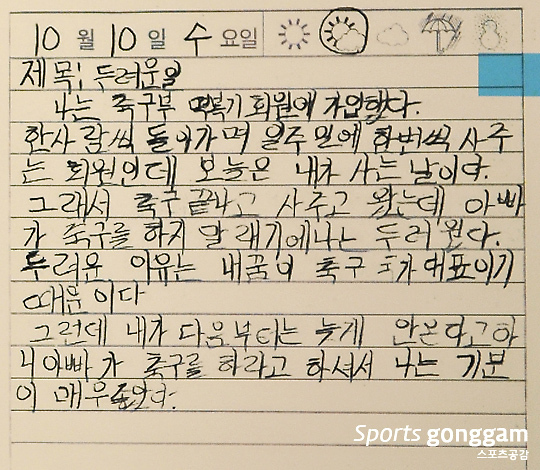 10 월 10 일 수 요일
제목: 두려운일
나는 축구부 떡볶기 회원에 가입했다.
한사람씩 돌아가며 일주일에 한번씩 사주
는 회원인데 오늘은 내가 사는 날이다.
그래서 축구 끝나고 사주고 왔는데 아빠
가 축구를 하지 말래기에나는 두려웠다.
두려운 이유는 내꿈이 축구 국가대표이기
때문이다
그런데 내가 다음부터는 늦게 안온다고하
니아빠가 축구를 하라고 하셔서 나는 기분
이 매우좋았다.
Sports gonggam
스포츠공감